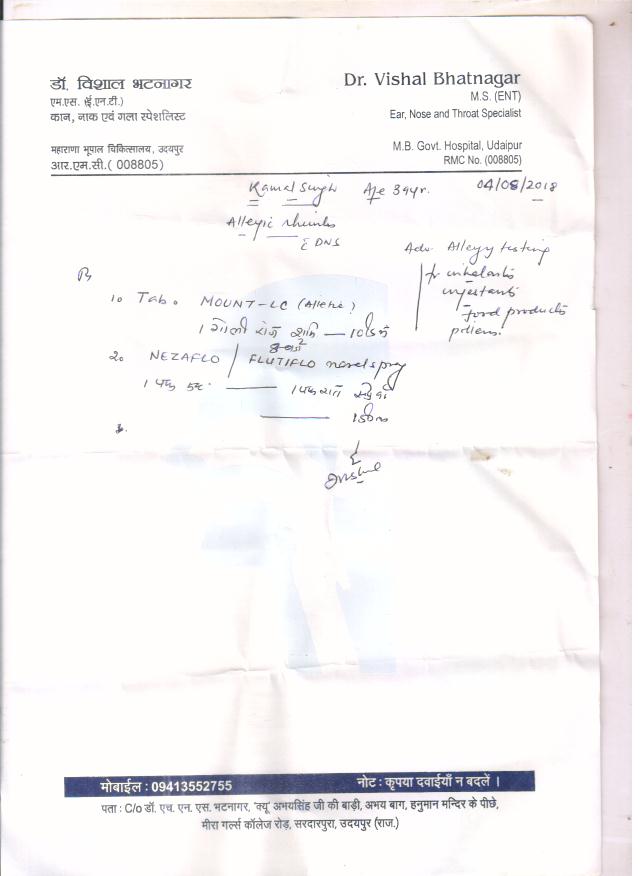 डॉ. विशाल भटनागर
एम.एस. (ई.एन.टी.)
कान, नाक एवं गला स्पेशलिस्ट
महाराणा भूपाल चिकित्सालय, उदयपुर
आर.एम.सी.( 008805)
Dr. Vishal Bhatnagar
M.S. (ENT)
Ear, Nose and Throat Specialist
M.B. Govt. Hospital, Udaipur
RMC No. (008805)
Kamal Singh Age 34yr. 04/08/2018
Allergic rhinitis
DNS
Adv. Allergy testing
for inhalants
injestants
food products
pollens.
Rx
1. Tab. MOUNT-LC
1 गोली रोज
2. NEZAFLO / FLUTIFLO nasal spray
1 पफ
मोबाईल : 09413552755 नोट : कृपया दवाईयाँ न बदलें ।
पता : C/o डॉ. एच. एन. एस. भटनागर, 'क्यू' अभयसिंह जी की बाड़ी, अभय बाग, हनुमान मन्दिर के पीछे,
मीरा गर्ल्स कॉलेज रोड़, सरदारपुरा, उदयपुर (राज.)